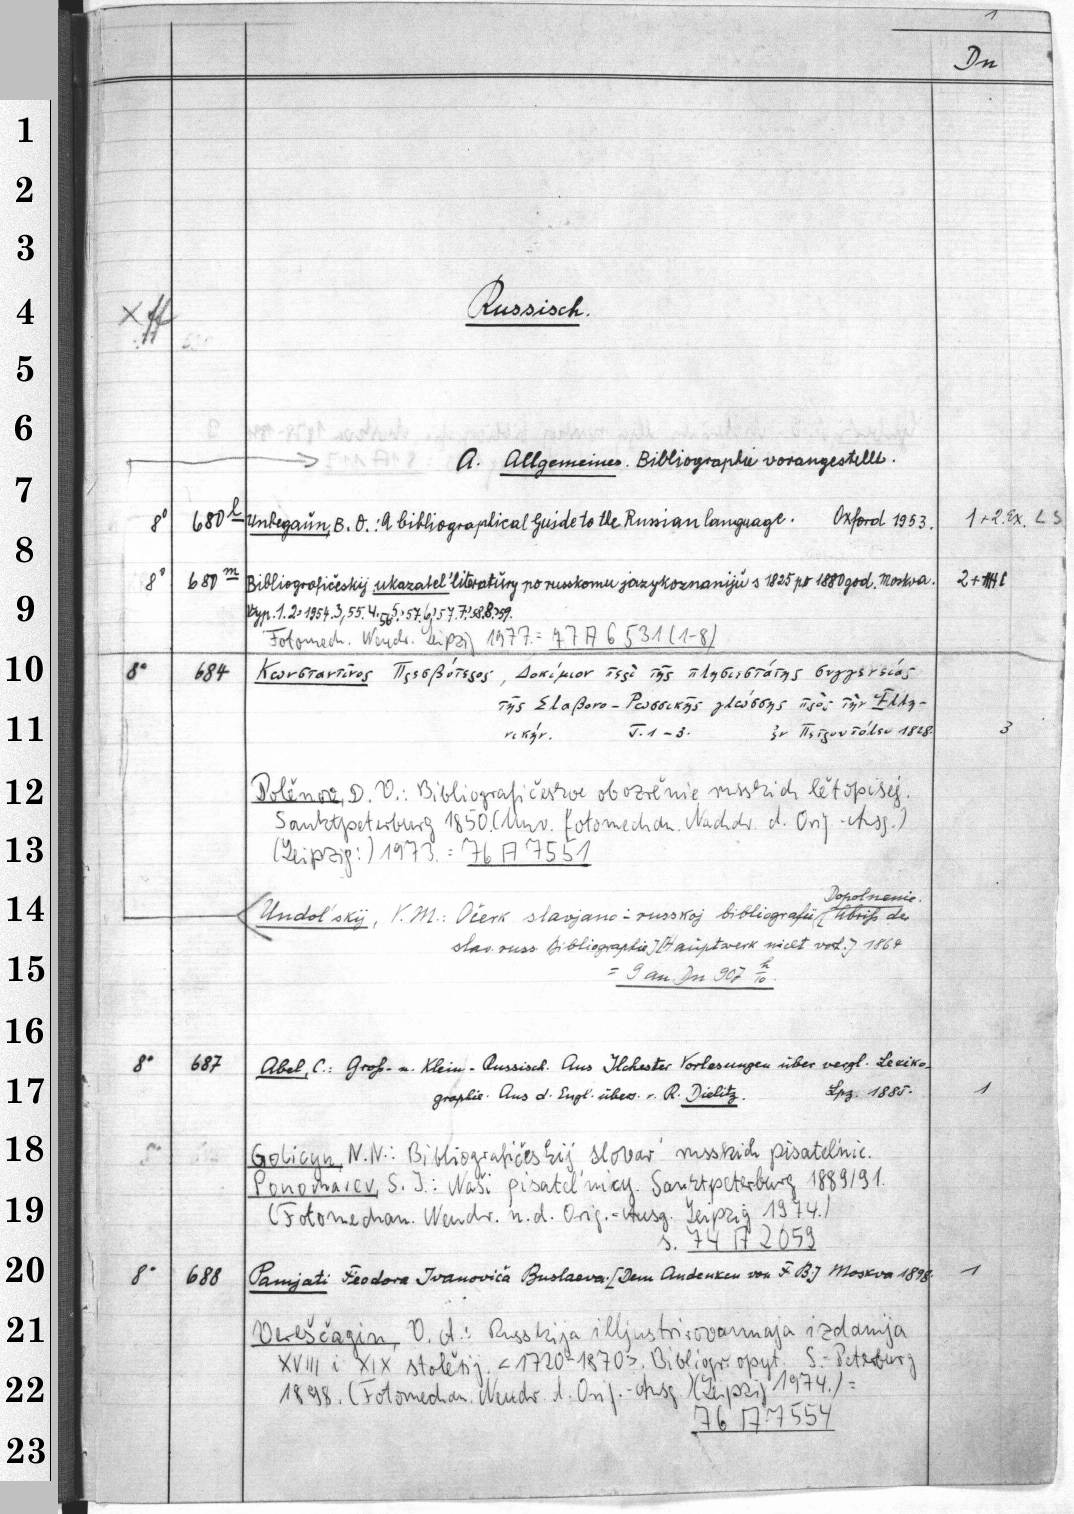 1
Dn
1
2
3
4
Russisch.
5
6
A. Allgemeines. Bibliographie vorangestellt.
7
8° 680 l Unbegaun, B. O.: A bibliographical Guide to the Russian language. Oxford 1953. 1+2. Ex. LS
8
8° 680 m Bibliografičeskij ukazatel' literatury po russkomu jazykoznaniju s 1825 po 1880 god. Moskva. 2+
9
Vyp. 1. 2. 1954. 3, 55. 4. 56 5. 57. 6, 57. 7. 58. 8. 59.
Fotomech. Neudr. Leipzig 1977. = 77 A 6531 (1-8)
10
8° 684 Κωνσταντῖνος Πρεσβύτερος, Δοκίμιον περὶ τῆς πλησιεστάτης συγγενείας
τῆς Σλαβονο-Ρωσσικῆς γλώσσης πρὸς τὴν Ἑλλη-
11
νικήν. T. 1-3. ἐν Πετρουπόλει 1828. 3
12
Polěnov, D. V.: Bibliografičeskoe obozrěnie russkich lětopisej.
Sanktpeterburg 1850. (Unv. fotomechan. Nachdr. d. Orig.-Ausg.)
13
(Leipzig:) 1973. = 76 A 7551
14
Undol'skij, V. M.: Očerk slavjano-russkoj bibliografii [Abriß der
Dopolnenie.
slav. russ. Bibliographie] [Hauptwerk nicht vorh.] 1864
15
= 9 an Dn 907 h/10.
16
8° 687 Abel, C.: Groß- u. Klein-Russisch. Aus Ilchester Vorlesungen über vergl. Lexiko-
17
graphie. Aus d. Engl. übers. v. R. Dielitz. Lpz. 1885. 1
18
Golicyn, N. N.: Bibliografičeskij slovar' russkich pisatel'nic.
Ponomarev, S. I.: Naši pisatel'nicy. Sanktpeterburg 1889/91.
19
(Fotomechan. Neudr. n. d. Orig.-Ausg. Leipzig 1974.)
s. 74 A 2059
20
8° 688 Pamjati Feodora Ivanoviča Buslaeva. [Dem Andenken von F. B.] Moskva 1898. 1
21
Vereščagin, V. A.: Russkija illjustrirovannaja izdanija
XVIII i XIX stolětij. <1720-1870>. Bibliogr. opyt. S.-Peterburg
22
1898. (Fotomechan. Neudr. d. Orig.-Ausg.) (Leipzig 1974.) =
76 A 7554
23